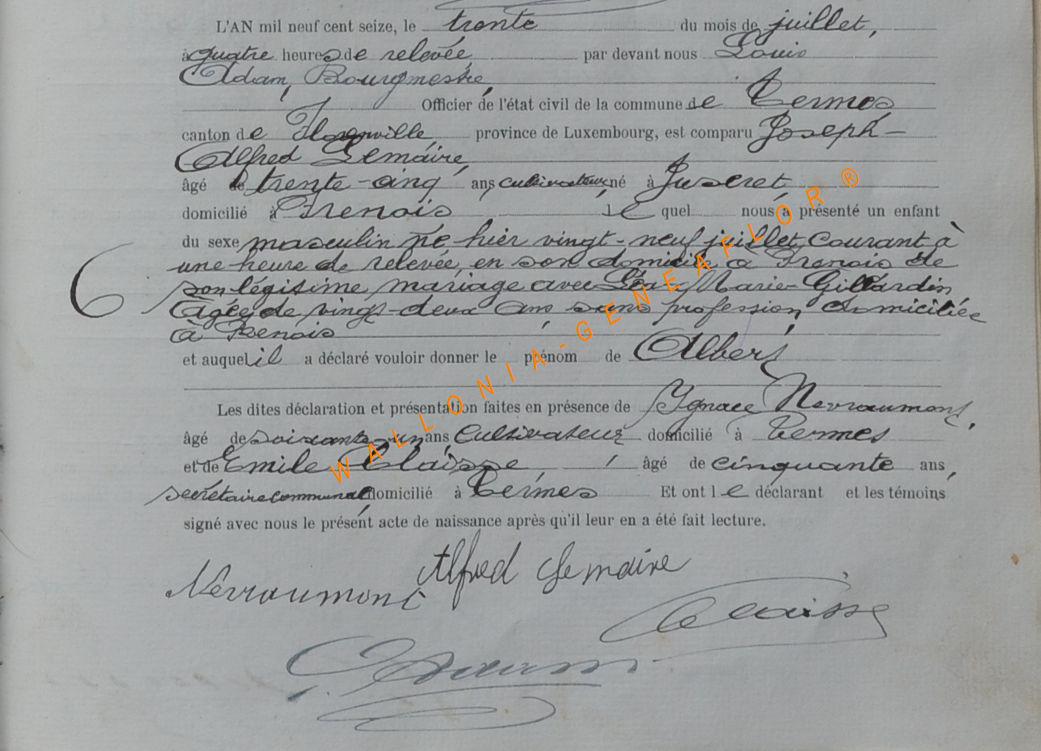 L'AN mil neuf cent seize, le trente du mois de juillet,
à quatre heures de relevée par devant nous Louis
Adam, Bourgmestre,
Officier de l'état civil de la commune de Termes
canton de Florenville province de Luxembourg, est comparu Joseph-
Alfred Lemaire,
âgé de trente-cinq ans cultivateur, né à Juseret,
domicilié à Frenois lequel nous a présenté un enfant
du sexe masculin né hier vingt-neuf juillet, courant à
une heure de relevée, en son domicile à Frenois de
son légitime mariage avec Marie Gillardin
agée de vingt-deux ans sans profession domiciliée
à Frenois
et auquel il a déclaré vouloir donner le prénom de Albert
Les dites déclaration et présentation faites en présence de Ignace Nevraumont,
âgé de soixante-un ans Cultivateur domicilié à Termes
et de Emile Claisse, âgé de cinquante ans,
secrétaire communal domicilié à Termes Et ont le déclarant et les témoins
signé avec nous le présent acte de naissance après qu'il leur en a été fait lecture.
6
Alfred Lemaire
Nevraumont
Claisse
Adam
WALLONIA-GENEAFLOR ®